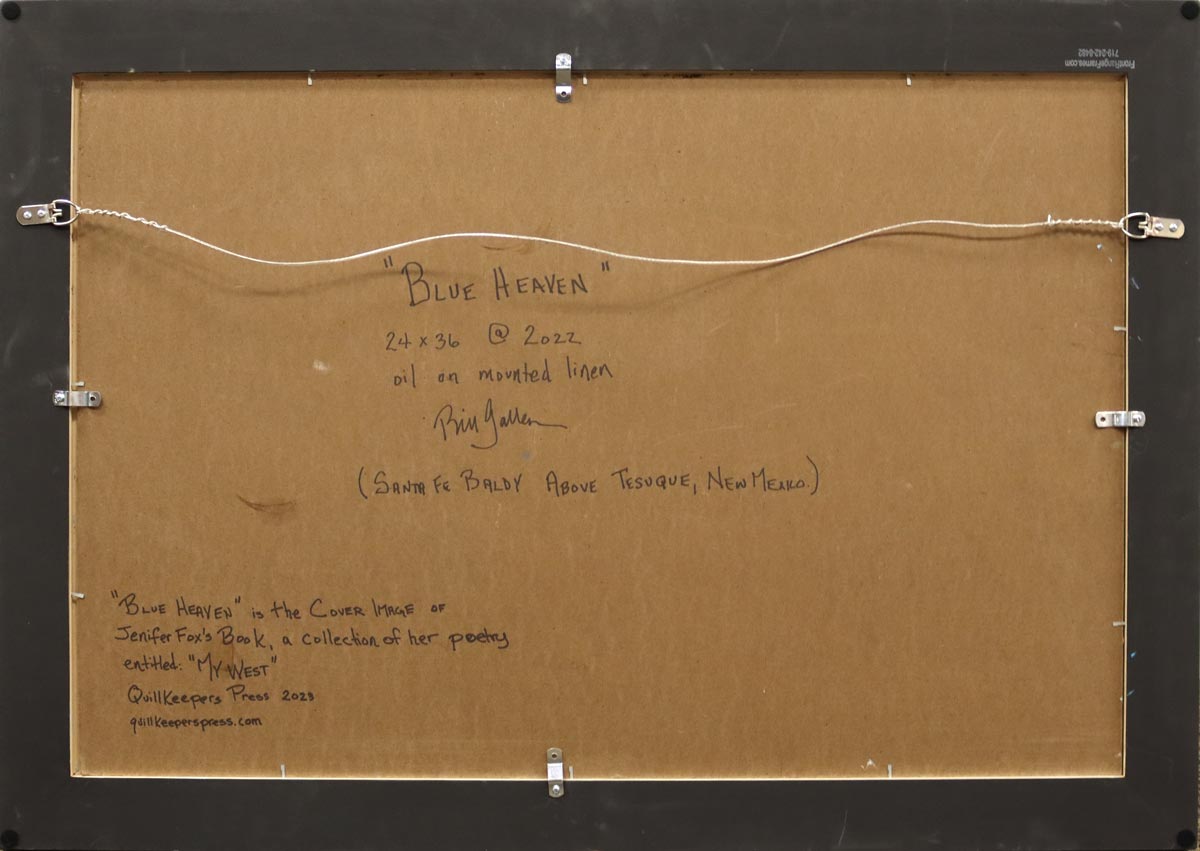 FrontRangeFrames.com
719-242-6482
"BLUE HEAVEN"
24 x 36 @ 2022
oil on mounted linen
Bill Gallen
(SANTA FE BALDY ABOVE TESUQUE, NEW MEXICO.)
"BLUE HEAVEN" is the COVER IMAGE OF
Jenifer Fox's Book, a collection of her poetry
entitled: "MY WEST"
QuillKeepers Press 2023
quillkeeperspress.com